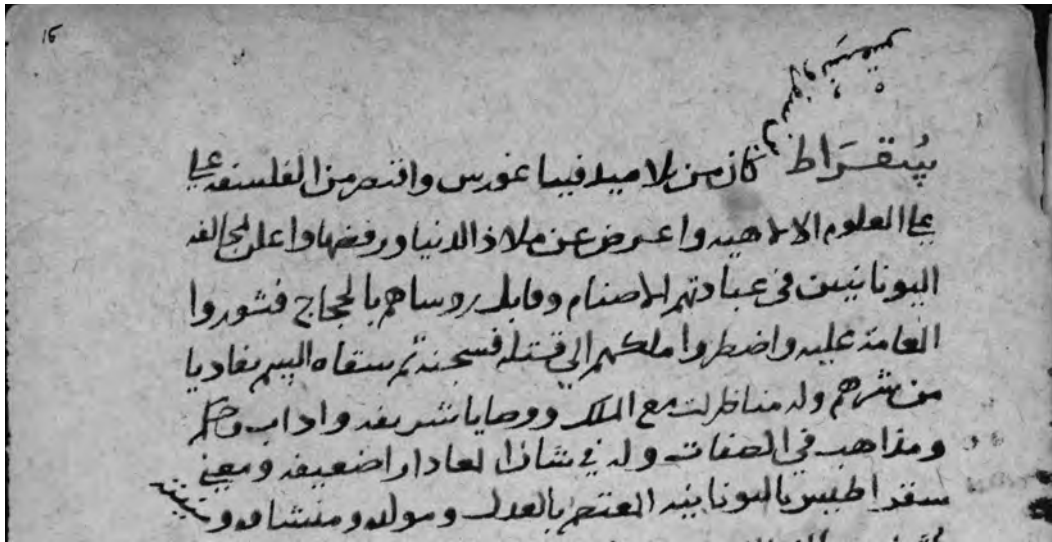 سقراط كان من تلاميذ فيثاغورس واقتصر من الفلسفه على
على العلوم الالاهيه واعرض عن ملاذ الدنيا ورفضها واعلن بمخالفه
اليونانيين فى عبادتهم الاصنام وقابل روساهم بالحجاج فثوروا
العامة عليه واضطروا ملكهم الي قتله فسجنه ثم سقاه السم تفاديا
من شرهم وله مناظرات مع الملك ووصايا شريفه واداب وحكم
ومذاهب في الصفات وله في شان المعاد ارا ضعيفه ومعني
سقراطيس باليونانيه المعتصم بالعدل ومولده ومنشاه و